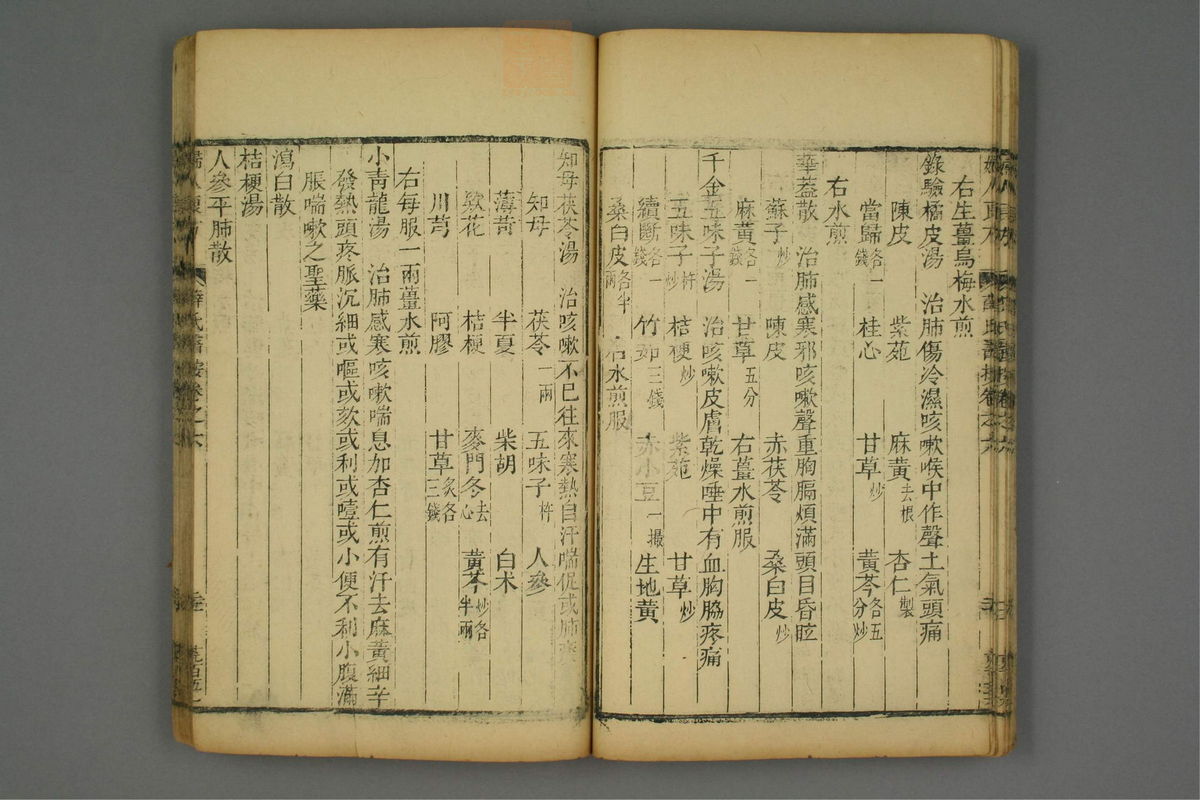 右生薑烏梅水煎
錄驗橘皮湯　治肺傷冷濕咳嗽喉中作聲上氣頭痛
陳皮　紫苑　麻黃去根　杏仁製
當歸各一錢　桂心　甘草炒　黃芩各五分炒
右水煎
華蓋散　治肺感寒邪咳嗽聲重胸膈煩滿頭目昏眩
蘇子炒　陳皮　赤茯苓　桑白皮炒
麻黃各一錢　甘草五分　右薑水煎服
千金五味子湯　治咳嗽皮膚乾燥唾中有血胸脇疼痛
五味子杵炒　桔梗炒　紫苑　甘草炒
續斷各一錢　竹茹三錢　赤小豆一撮　生地黃
桑白皮各半兩　右水煎服
知母茯苓湯　治咳嗽不已往來寒熱自汗喘促或肺
知母　茯苓一兩　五味子杵　人參
薄荷　半夏　柴胡　白朮
款花　桔梗　麥門冬去心　黃芩炒各半兩
川芎　阿膠　甘草炙各三錢
右每服一兩薑水煎
小青龍湯　治肺感寒咳嗽喘息加杏仁煎有汗去麻黃細辛
發熱頭疼脈沉細或嘔或欬或利或噎或小便不利小腹滿
脹喘嗽之聖藥
瀉白散
桔梗湯
人參平肺散
薛氏醫按卷之六